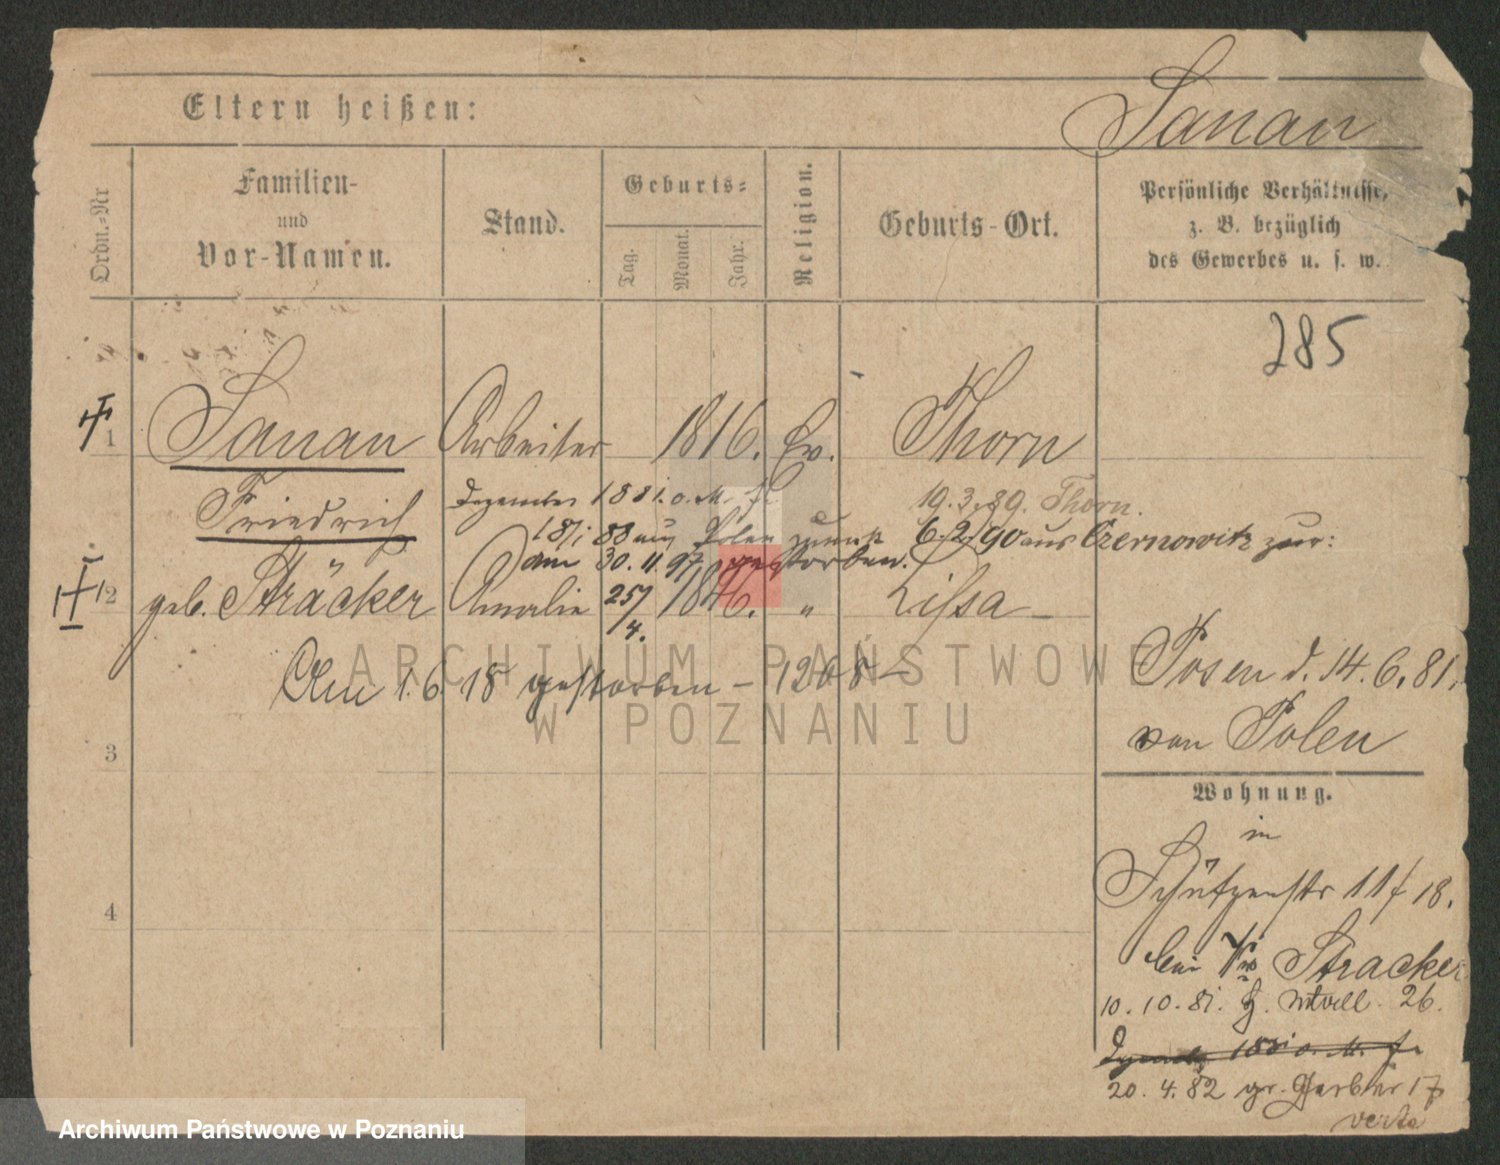 Eltern heißen:
Sanau
Ordn.-Nr
Familien-
und
Vor-Namen.
Stand.
Geburts-
Tag.
Monat.
Jahr.
Religion.
Geburts-Ort.
Persönliche Verhältnisse,
z. B. bezüglich
des Gewerbes u. s. w.
285
1
Sanau Arbeiter 1816. Ev. Thorn
Friedrich
Dezember 1881. o. M.
19.3.89. Thorn.
aus Polen zurück 6.2.90 aus Czernowitz zur:
am 30.11.97 gestorben.
2
geb. Sträcker Amalie 25/4. 1846. " Lissa
Am 1.6 18 gestorben - 1268 -
Posen d. 14.6.81.
von Polen
3
Wohnung.
in
Schützenstr 11 / 18.
bei Stracker
4
10.10.81. 26.
20.4.82 gr. Gerber 17
verte
ARCHIWUM PAŃSTWOWE
W POZNANIU
Archiwum Państwowe w Poznaniu